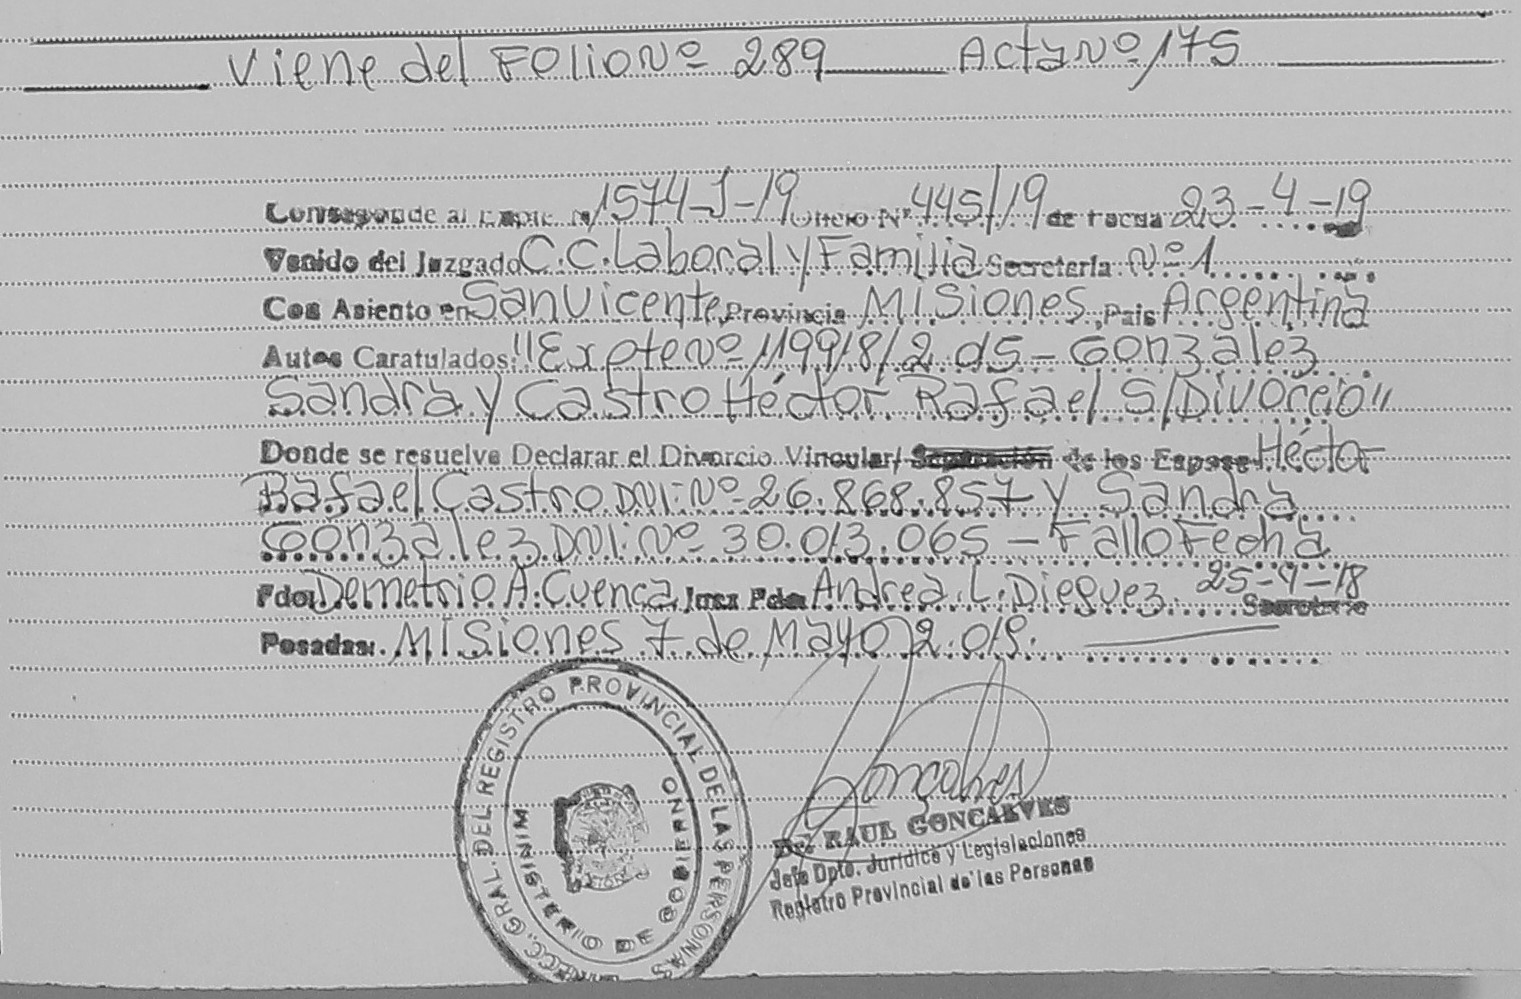 Viene del FolioNº 289 ActaNº 175
Corresponde al Expte. Nº 1574-J-19 Oficio Nº 445/19 de Fecha 23-4-19
Venido del Juzgado C.C. Laboral y Familia Secretaría Nº 1
Con Asiento en San Vicente Provincia Misiones, Pais Argentina
Autos Caratulados: "Expte Nº 119918/2.015 - Gonzalez
Sandra y Castro Héctor Rafael S/Divorcio"
Donde se resuelve Declarar el Divorcio Vincular/ Separación de los Esposos Héctor
Rafael Castro DNI: Nº 26.868.857 y Sandra
Gonzalez DNI: Nº 30.013.065 - Fallo Fecha
25-4-18
Fdo: Demetrio A. Cuenca Juez Fdo: Andrea L. Dieguez Secretario
Posadas: Misiones 7 de Mayo 2.019.
GRAL. DEL REGISTRO PROVINCIAL DE LAS PERSONAS
MINISTERIO DE GOBIERNO
Goncalves
Dr. RAUL GONCALVES
Jefe Dpto. Jurídico y Legislaciones
Registro Provincial de las Personas